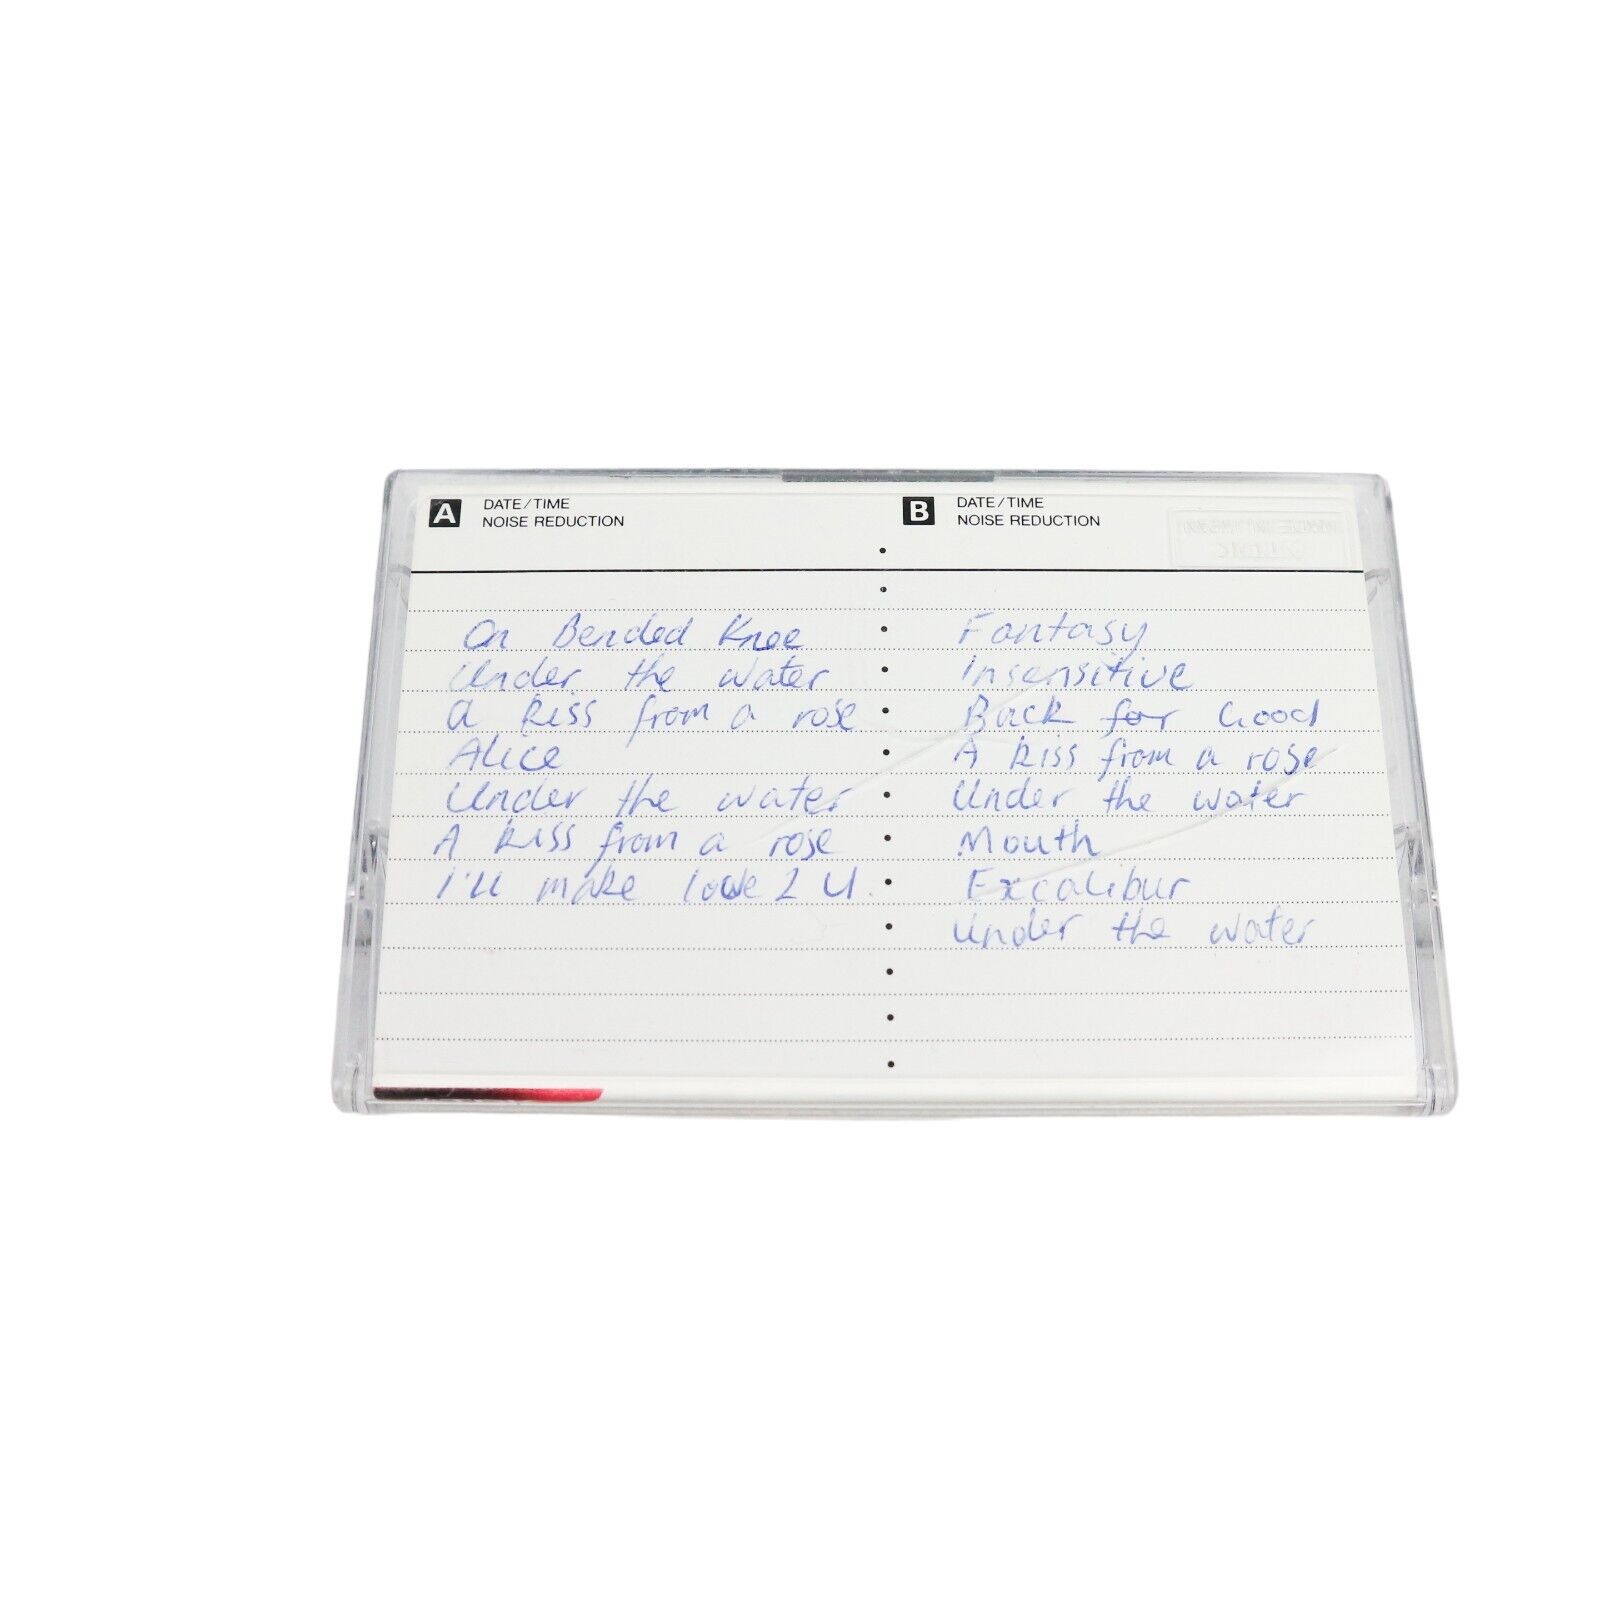 A DATE/TIME
NOISE REDUCTION
On Bended Knee
Under the water
a kiss from a rose
Alice
Under the water
A kiss from a rose
I'll make love 2 U.
B DATE/TIME
NOISE REDUCTION
Fantasy
Insensitive
Back for Good
A kiss from a rose
Under the water
Mouth
Excalibur
Under the water